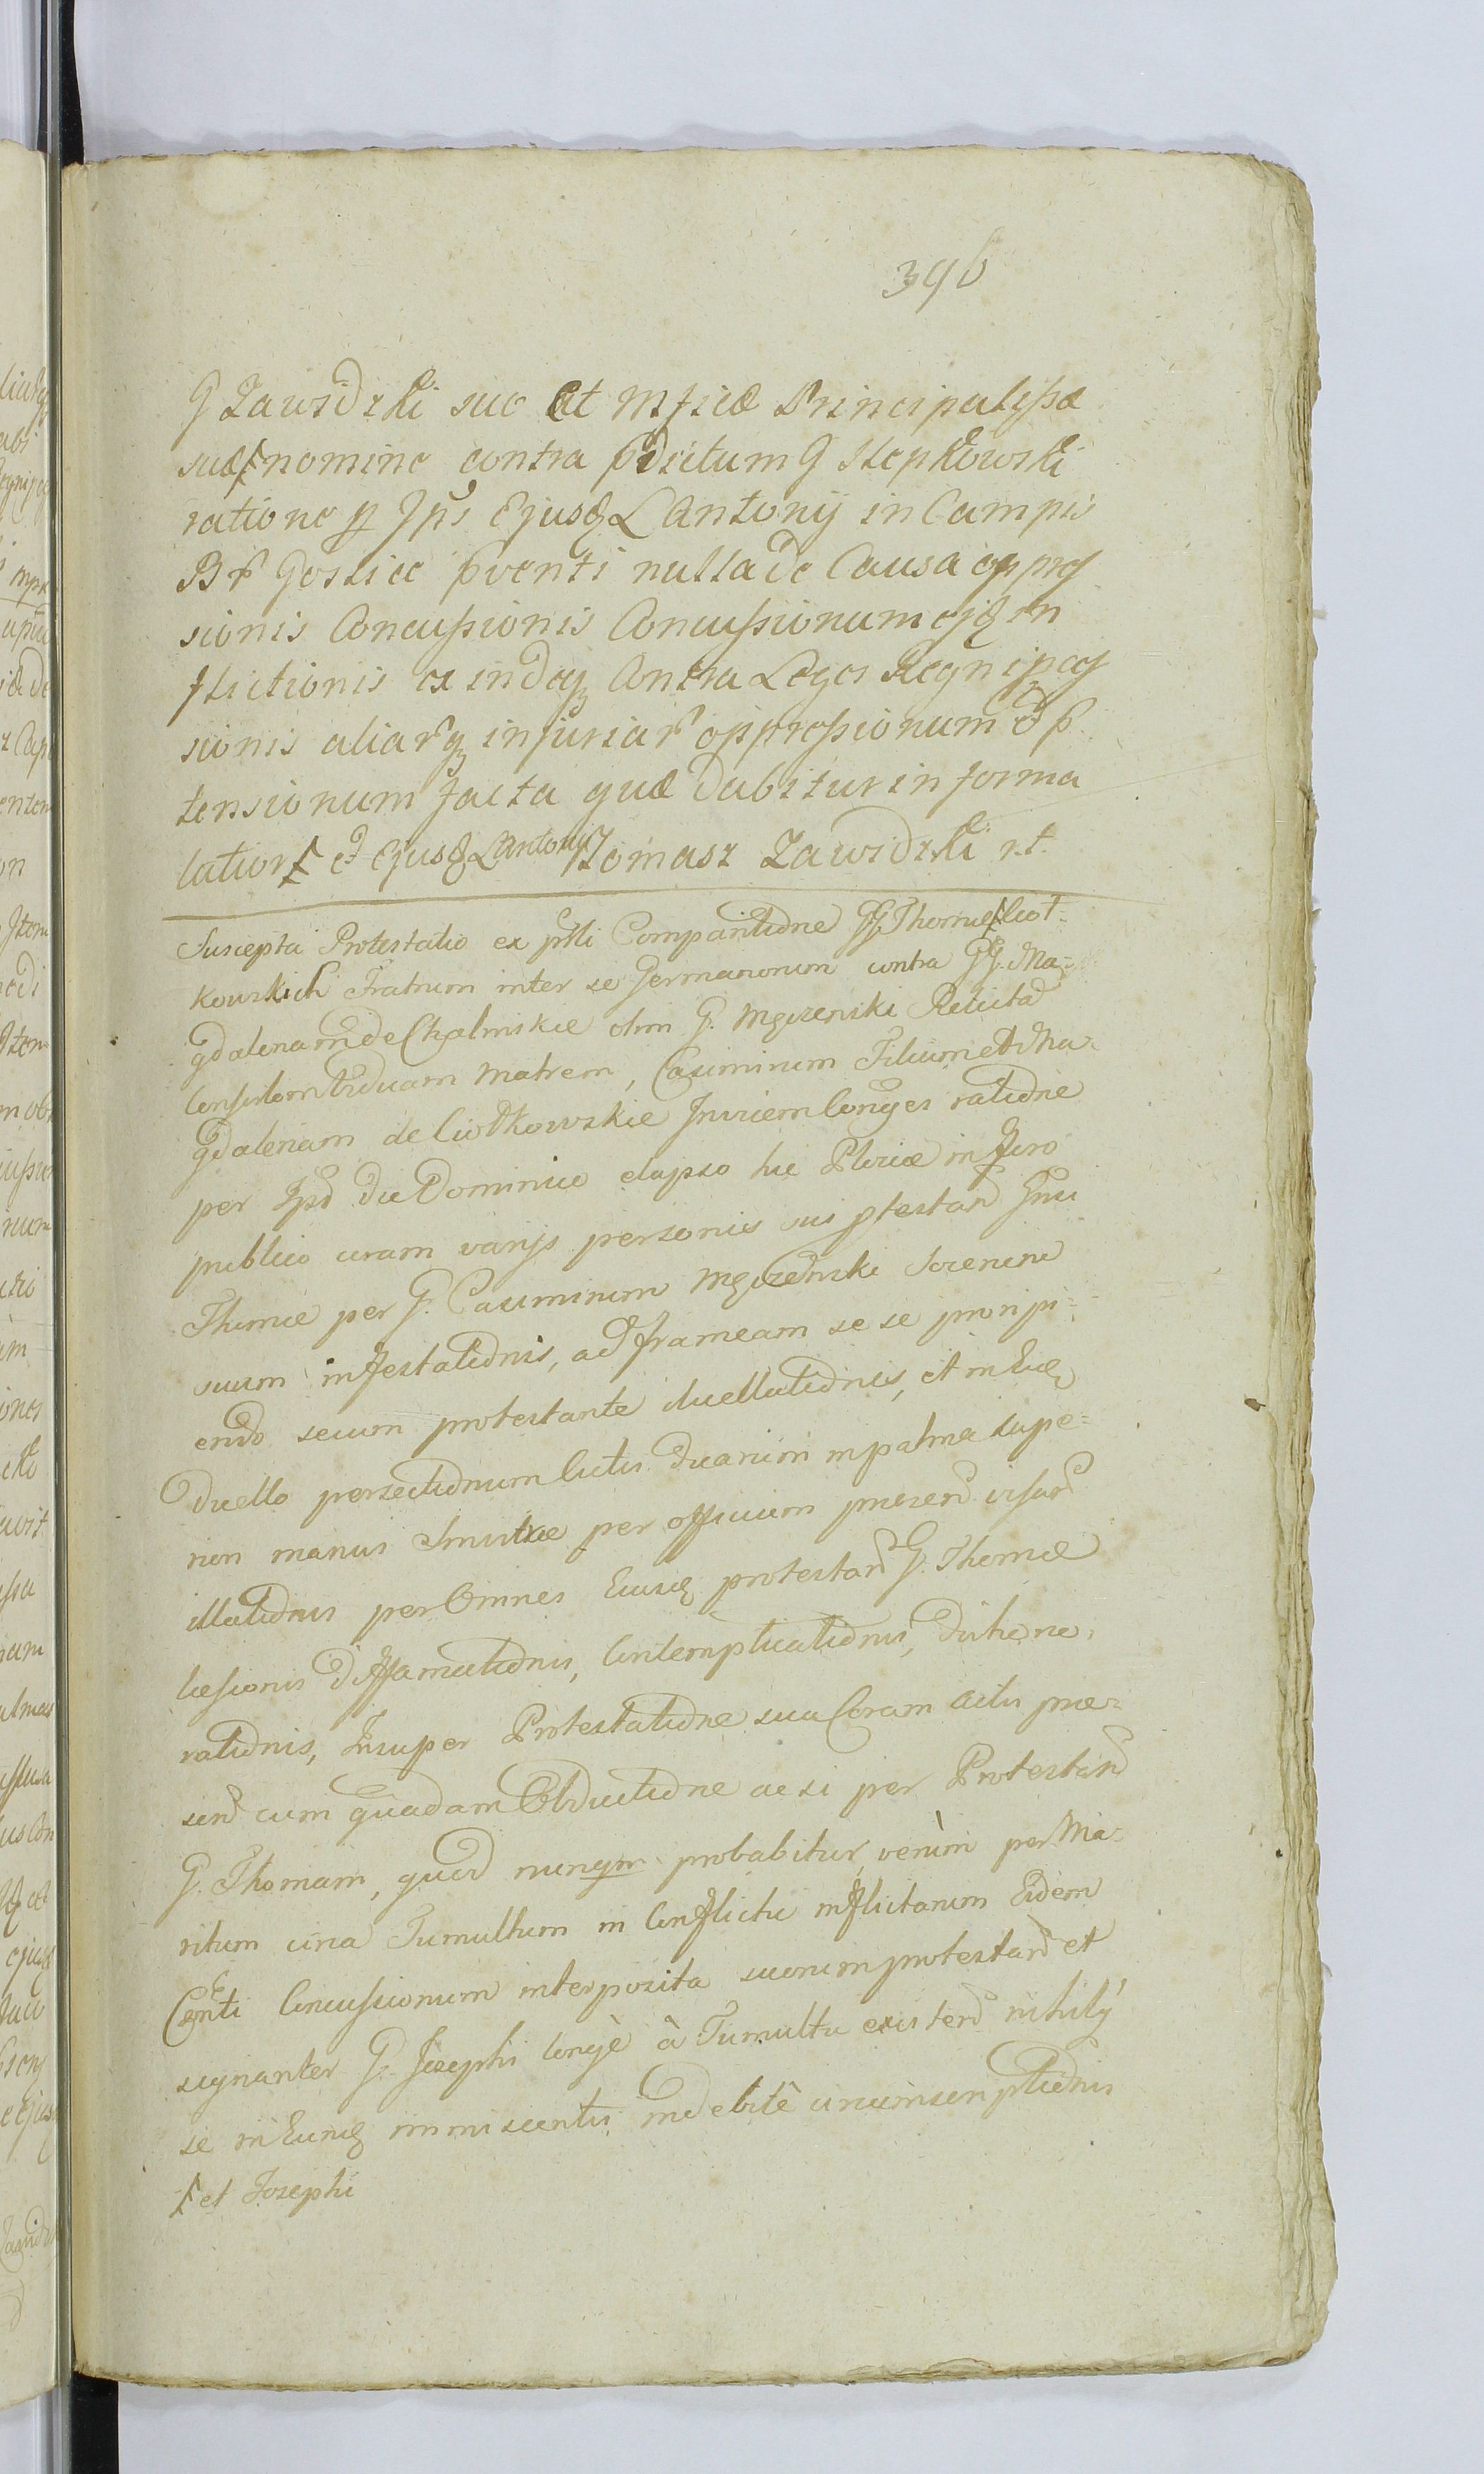 396
G Zawidzki suo et Mficæ Principalissæ
suæ nomine contra pdictum G Stepkowski
ratione p Ips Ejusq L Antonij in Campis
Br Goslice pventi nulla de Causa oppres
sionis Concussionis Concussionum ejq in
flictionis ex indeq Contra Leges Regni
sionis aliarq injuriar oppressionum et p
tensionum facta quæ dabitur in forma
latior et Ejusq L Antonij Tomasz Zawidzki r.t.
Suscepta Protestatio ex pti Comparitione GG Thomæ Ciot-
kowskich Fratrum inter se Germanorum contra GG. Ma-
gdalenam de Chalmskie olim G. Mgozenski Relicta
Consortem Viduam Matrem, Casimirum Filium et Ma-
gdalenam de Ciołkowskie Invicem Conges ratione
per Ips die Dominico elapso hic Plociæ in Foro
publico coram varijs personis sui ptestan Gnsi
Thomæ per G. Casimirum Mgozenski Serenini
suum infestationis, ad frameam se se proripi-
endo secum protestante duellationis, et in Eoq
Duello persectionum Ictus duarum in palma supe-
riori manus sinistræ per officium præsen visar
illationis per Omnes Eiusq protestan G. Thomæ
læsionis Diffamationis, Contemplicationis, Dishono-
rationis, Insuper Protestatione sua Coram actis præ-
sen cum quadam Obductione ac si per Protestan
G. Thomam, quod nunqm probabitur, verùm per Ma-
ritum circa Tumultum in Conflictu inflictarum Eidem
Conti Concussionum interposita suorum protestan et
signanter G. Josephi longè à Tumultu existen nihilq
se in Eumq immiscentis indebitè circumscriptionis
et Josephi